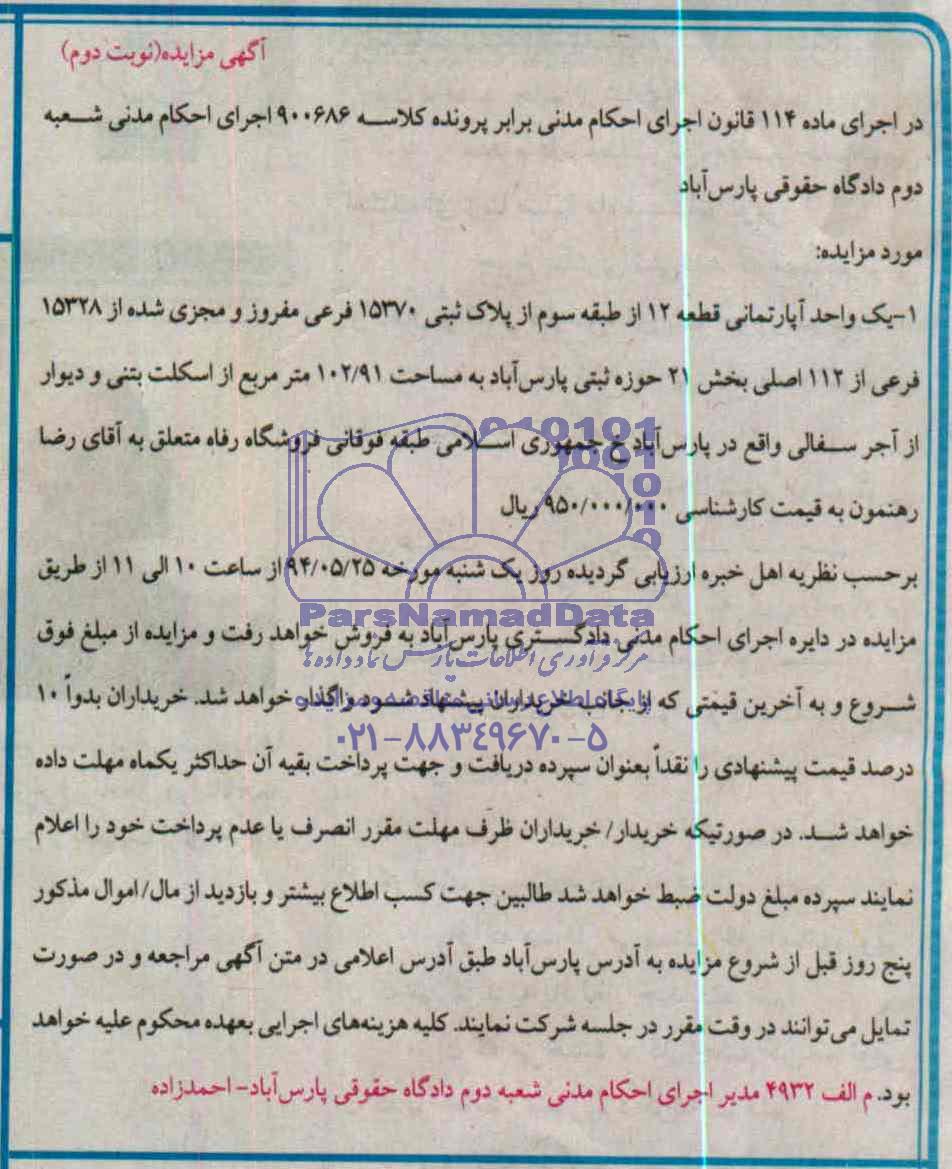 آگهی مزایده(نوبت دوم)
در اجرای ماده ۱۱۴ قانون اجرای احکام مدنی برابر پرونده کلاسه ۹۰۰۶۸۶ اجرای احکام مدنی شعبه
دوم دادگاه حقوقی پارس‌آباد
مورد مزایده:
۱-یک واحد آپارتمانی قطعه ۱۲ از طبقه سوم از پلاک ثبتی ۱۵۳۷۰ فرعی مفروز و مجزی شده از ۱۵۳۲۸
فرعی از ۱۱۲ اصلی بخش ۲۱ حوزه ثبتی پارس‌آباد به مساحت ۱۰۲/۹۱ متر مربع از اسکلت بتنی و دیوار
از آجر سفالی واقع در پارس‌آباد خ جمهوری اسلامی طبقه فوقانی فروشگاه رفاه متعلق به آقای رضا
رهنمون به قیمت کارشناسی ۹۵۰/۰۰۰/۰۰۰ ریال
برحسب نظریه اهل خبره ارزیابی گردیده روز یک شنبه مورخه ۹۴/۰۵/۲۵ از ساعت ۱۰ الی ۱۱ از طریق
ParsNamadData
مزایده در دایره اجرای احکام مدنی دادگستری پارس‌آباد به فروش خواهد رفت و مزایده از مبلغ فوق
مرکز فرآوری اطلاعات پارس نماد داده ها
شروع و به آخرین قیمتی که از جانب خریداران پیشنهاد شود واگذار خواهد شد. خریداران بدواً ۱۰
۰۲۱-۸۸۳۴۹۶۷۰-۵
درصد قیمت پیشنهادی را نقداً بعنوان سپرده دریافت و جهت پرداخت بقیه آن حداکثر یکماه مهلت داده
خواهد شد. در صورتیکه خریدار/ خریداران ظرف مهلت مقرر انصرف یا عدم پرداخت خود را اعلام
نمایند سپرده مبلغ دولت ضبط خواهد شد طالبین جهت کسب اطلاع بیشتر و بازدید از مال/ اموال مذکور
پنج روز قبل از شروع مزایده به آدرس پارس‌آباد طبق آدرس اعلامی در متن آگهی مراجعه و در صورت
تمایل می‌توانند در وقت مقرر در جلسه شرکت نمایند. کلیه هزینه‌های اجرایی بعهده محکوم علیه خواهد
بود. م الف ۴۹۳۲ مدیر اجرای احکام مدنی شعبه دوم دادگاه حقوقی پارس‌آباد- احمدزاده